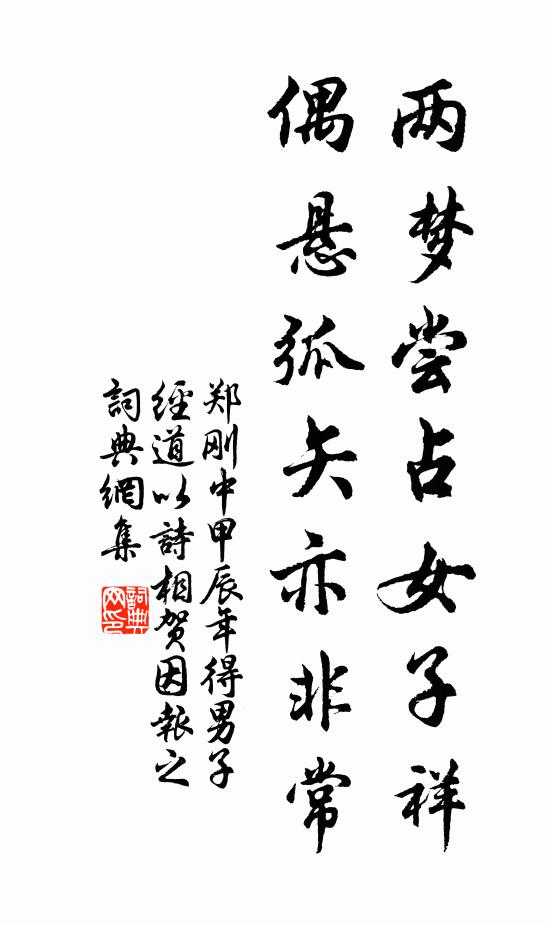 两梦尝占女子祥
偶悬弧矢亦非常
郑刚中甲辰年得男子
經道以詩相贺因報之
詞典網集
詞典
网印